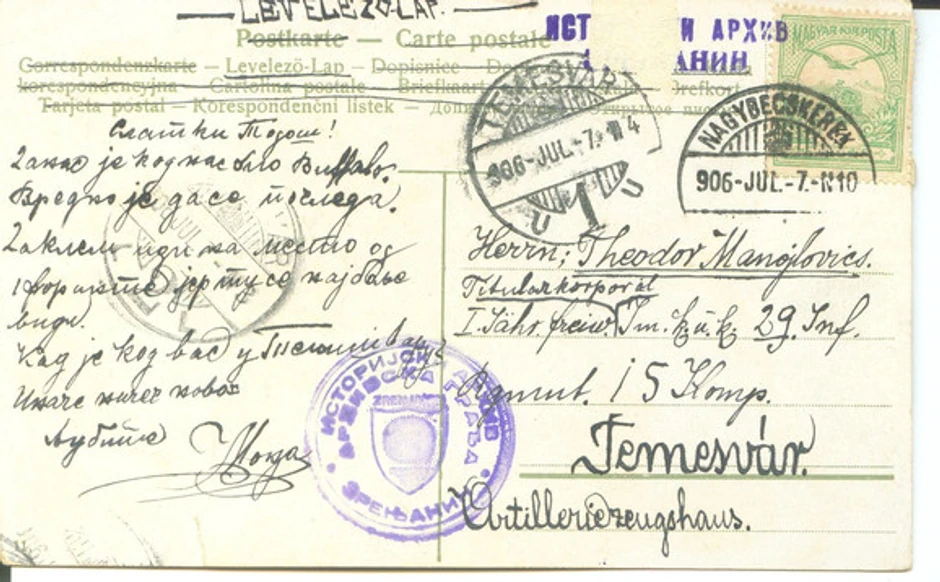 LEVELEZŐ-LAP.
Postkarte — Carte postale
Correspondenzkarte — Levelező-Lap — Dopisnice —
korespondencyjna — Cartolina postale — Briefkaart
Tarjeta postal — Korespondenční listek —
ИСТ И АРХИВ
АНИН
MAGYAR KIR. POSTA
TEMESVÁR
906-JUL.-7.-N 4
NAGYBECSKEREK
906-JUL.-7.-N10
Слатки Тодош!
Данас је код нас био Buffalo.
Вредно је да се погледа.
иди на место од
1 форинте јер ту се најбоље
види.
Кад је код вас у Темишвару?
Иначе ничег новог
Љубите
Herrn; Theodor Manojlovics.
Titularkorporal
I. Jähr. freiw. Im. k. u. k. 29. Inf.
Regmnt. 15 Komp.
Temesvár.
Artilleriezeugshaus.
ИСТОРИЈСКИ АРХИВ
АРХИВСКА ГРАЂА
ЗРЕЊАНИН